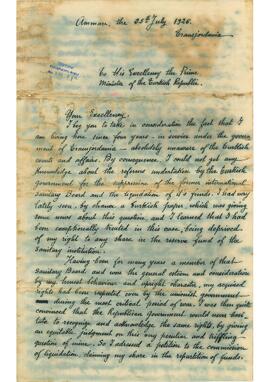 Amman, the 25th July 1926.
Transjordania
To His Excellency the Prime
Minister of the Turkish Republic.
Your Excellency,
I beg you to take in consideration the fact that I
am living here since four years - in service under the govern-
ment of Transjordania - absolutely unaware of the Turkish
events and affairs. By consequence, I could not get any
knowledge about the reforms undertaken by the Turkish
Government for the suppression of the former international
Sanitary Board and the liquidation of it's funds. I had very
lately seen, by chance a Turkish paper, which was giving
some news about this question, and I learned that I had
been exceptionally treated in this case, being deprived
of my right to any share in the reserve fund of the
Sanitary institution.
Having been for many years a member of that
Sanitary Board and won the general esteem and consideration
by my honest behaviour and upright character, my acquired
rights had been respected even by the unionist government
during the most critical period of war. I was then quite
convinced that the Republican Government would never hesi-
tate to recognize and acknowledge the same rights, by giving
an equitable judgment on this very peculiar and
question of mine. So I adressed a petition to the commission
of liquidation, claiming my share in the repartition of funds.